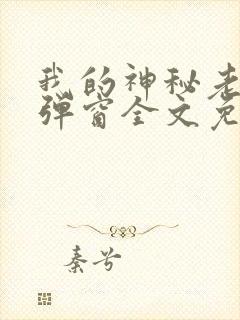 我的神秘老
弹窗全文免
秦兮